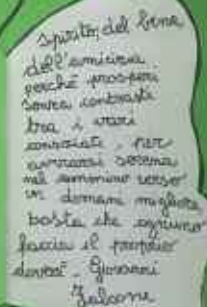 spirito, del bene
dell'amicizia
perché prosperi
senza contrasti
tra i vari
consociati, per
avviarsi serena
nel cammino verso
un domani migliore
basta che ognuno
faccia il proprio
dovere". Giovanni
Falcone